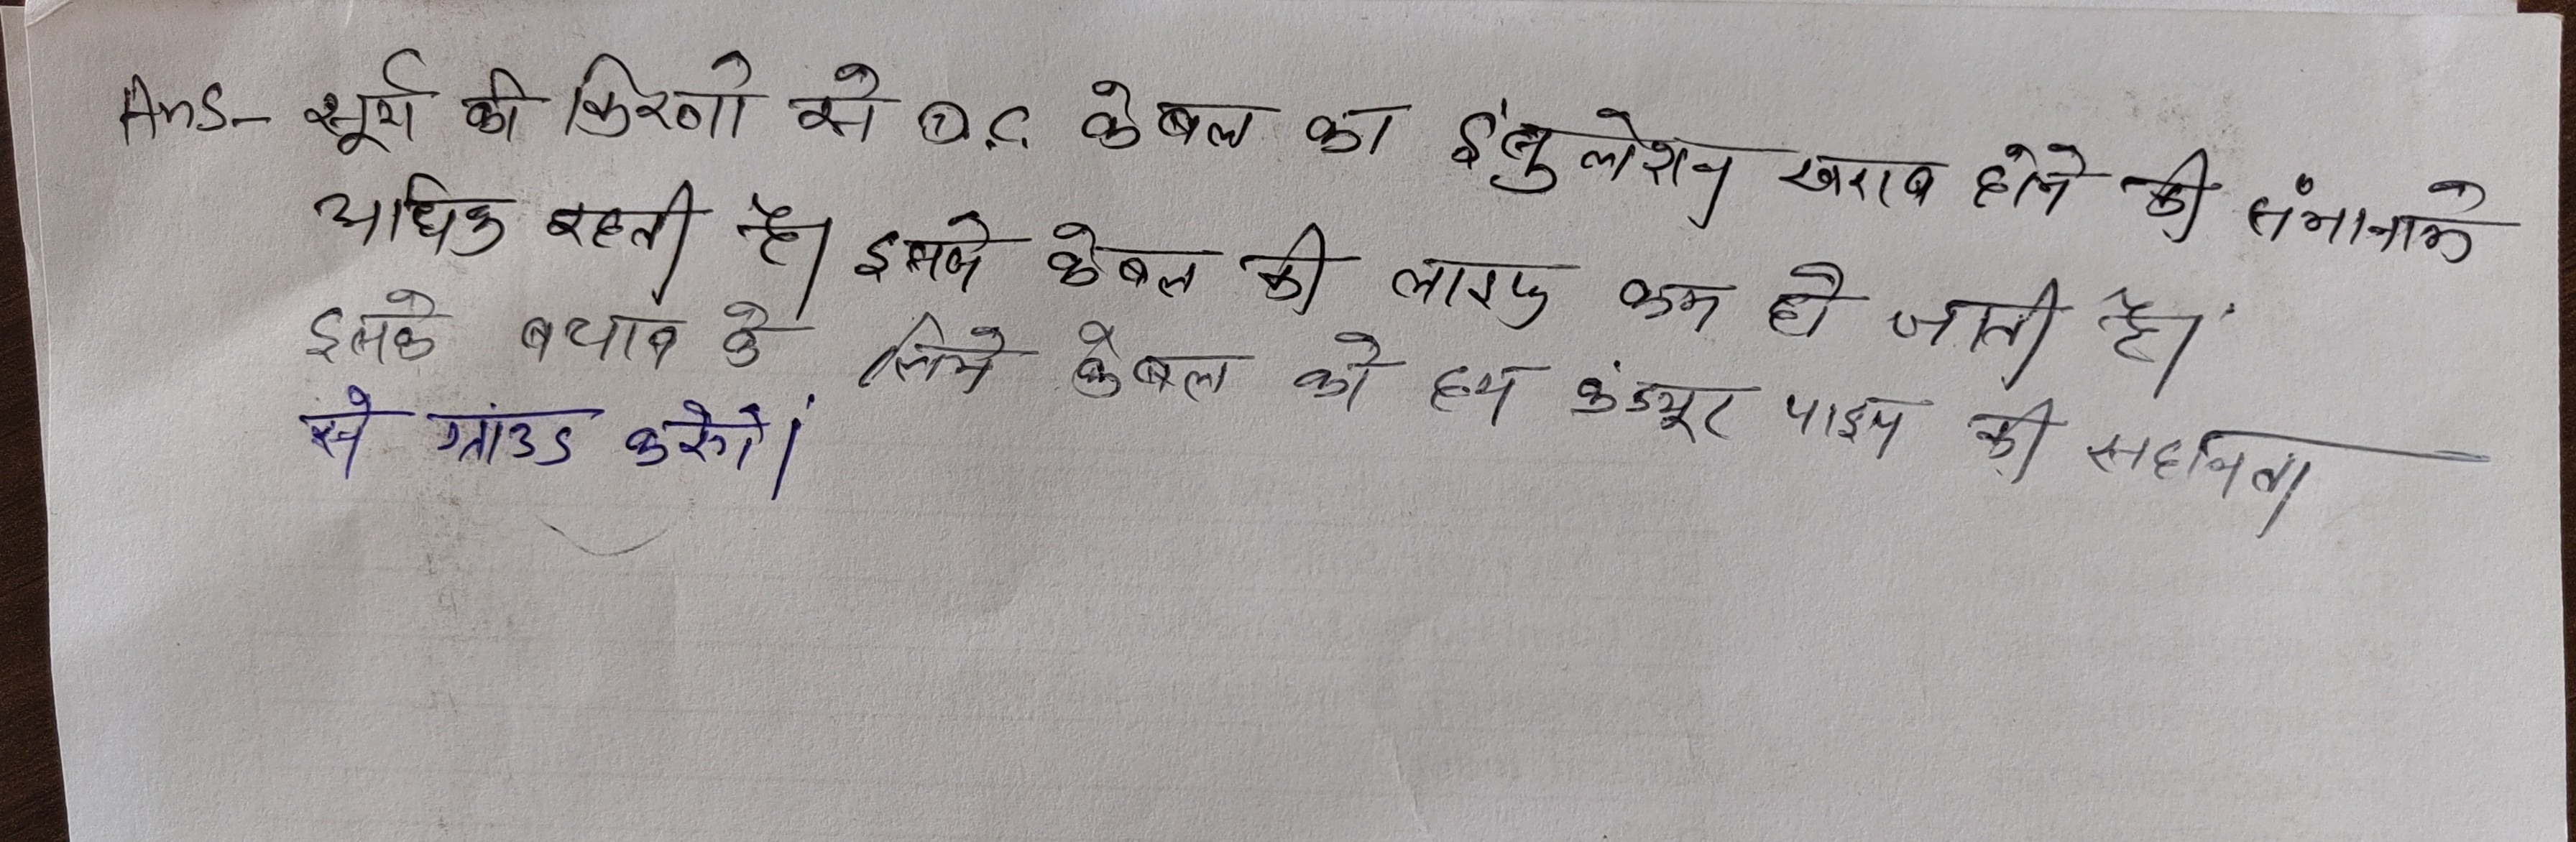 Ans- सूर्य की किरणों से D.C. केबल का इंसुलेशन खराब होने की संभानाये
अधिक रहती है। इससे केबल की लाइफ कम हो जाती है।
इसके बचाव के लिये केबल को हम कंड्यूट पाइप की सहायता
से ग्राउंड करेंगे।